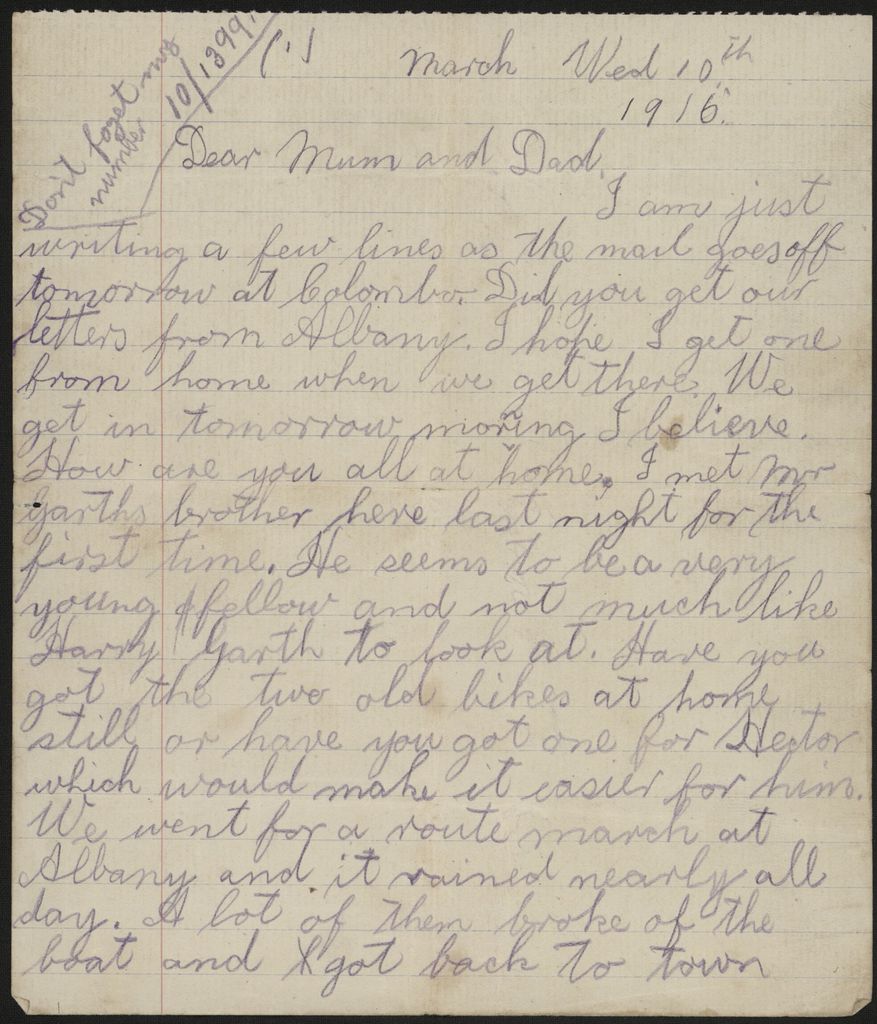 Don't foget my
number
10/1399.
(1)
March Wed 10th
1916.
Dear Mum and Dad,
I am just
writing a few lines as the mail goes off
tomorrow at Colombo. Did you get our
letters from Albany. I hope I get one
from home when we get there. We
get in tomorrow morning I believe.
How are you all at home. I met Mr
Garths brother here last night for the
first time. He seems to be a very
young fellow and not much like
Harry Garth to look at. Have you
got the two old bikes at home
still or have you got one for Hector
which would make it easier for him.
We went for a route march at
Albany and it rained nearly all
day. A lot of them broke of the
boat and got back to town